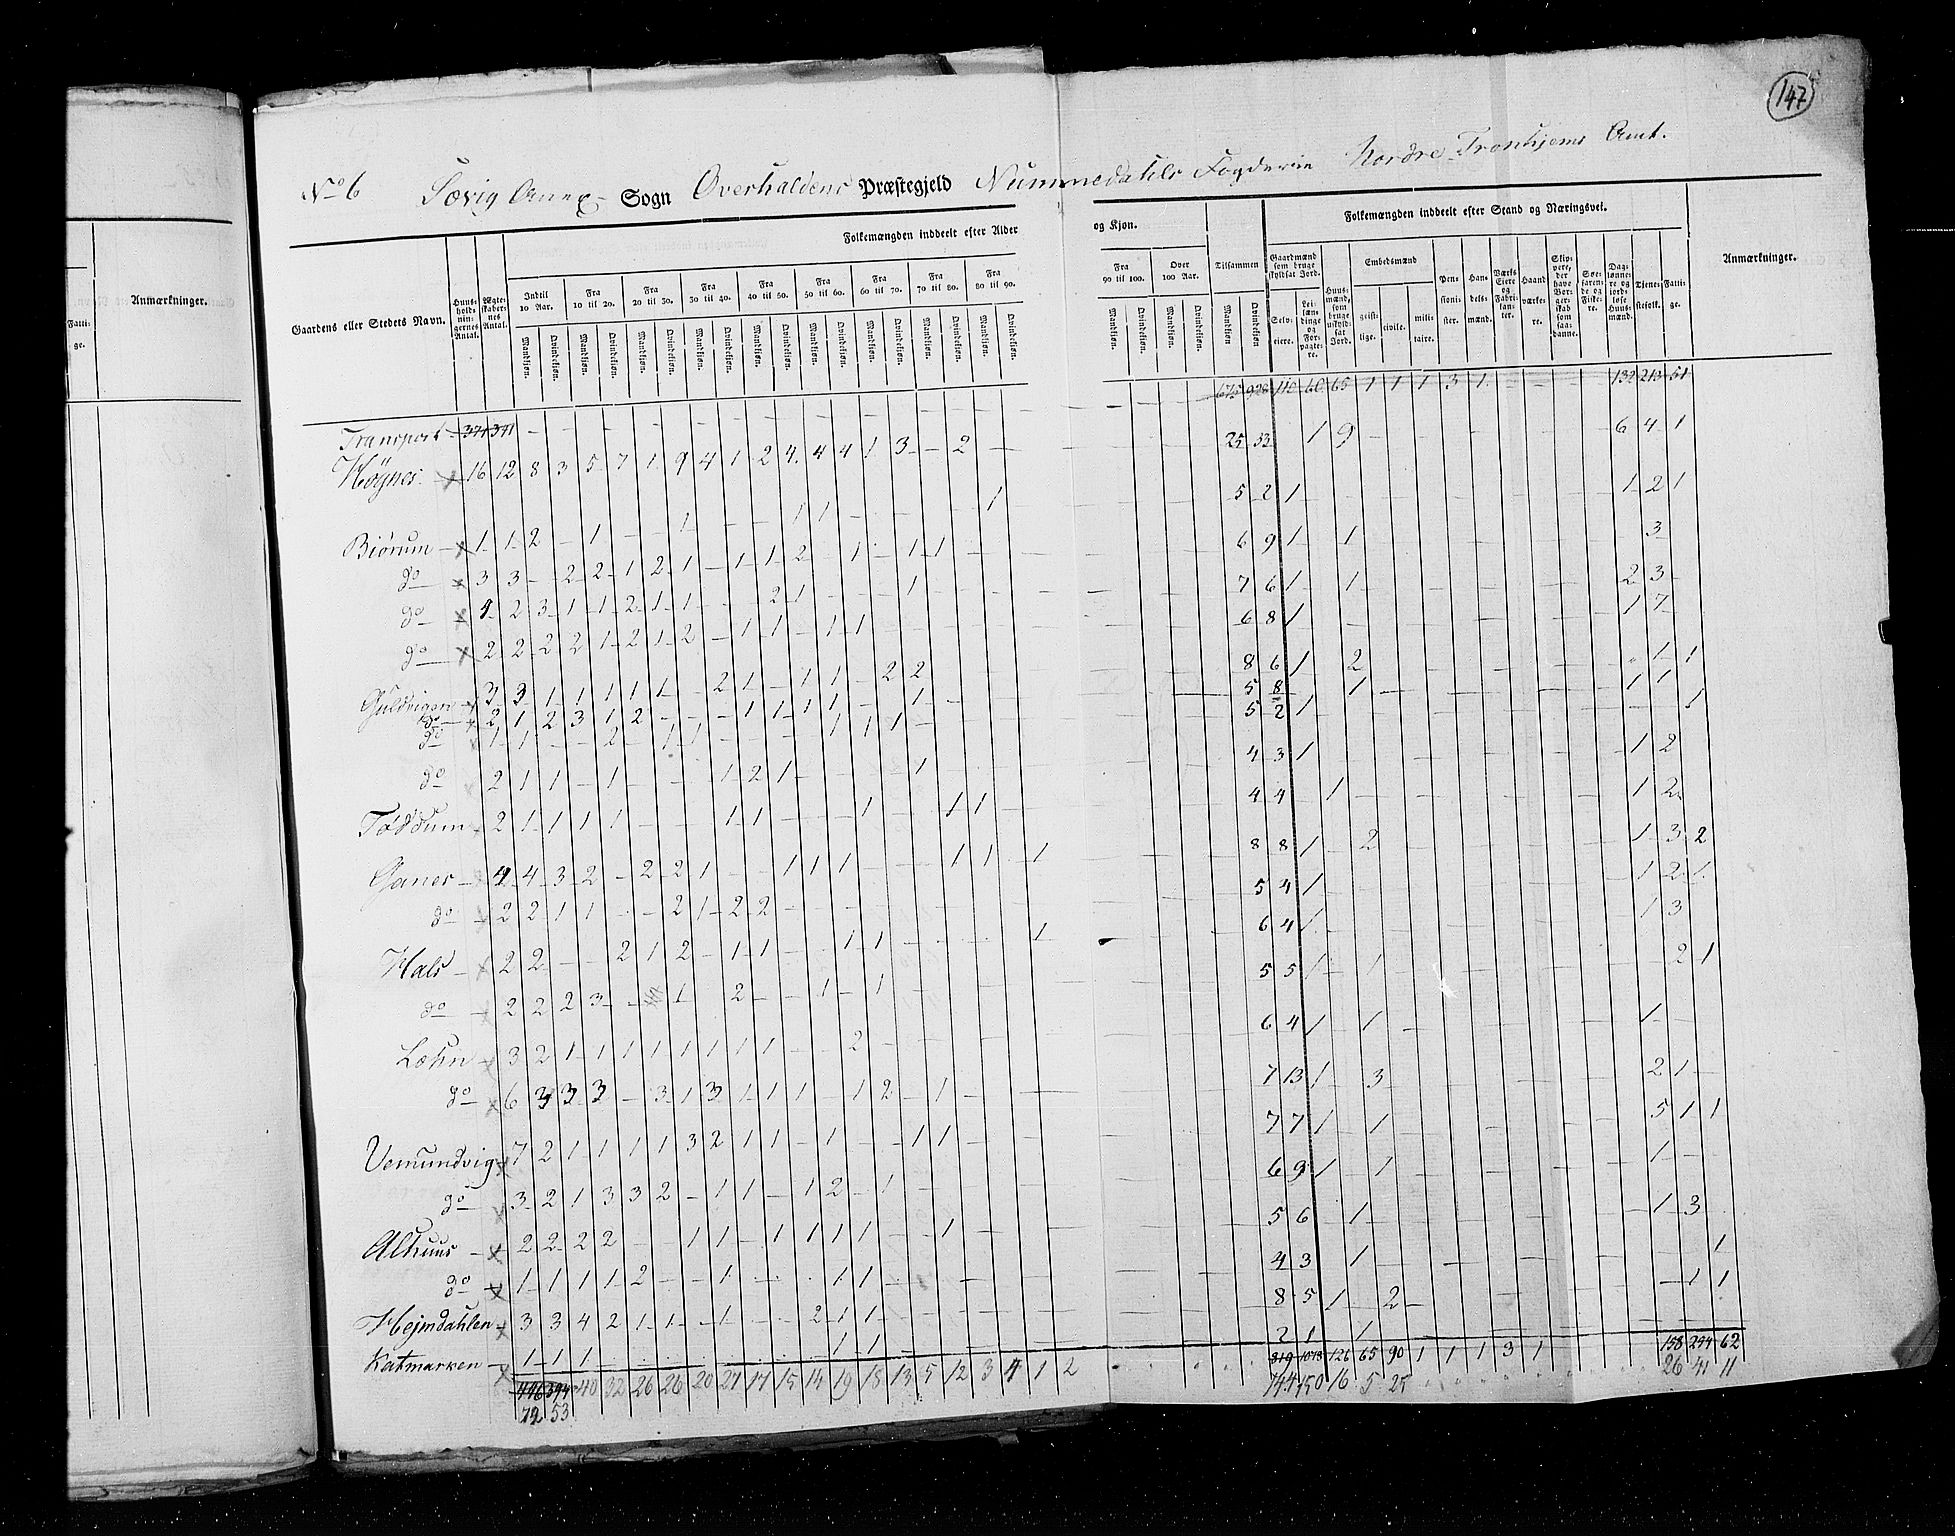 147
No 6 Sævig Anex Sogn Overhaldens Præstegjeld Nummedahls Fogderie Nordre Tronhjems Amt.
Folkemængden inddeelt efter Alder og Kjøn. Folkemængden inddeelt efter Stand og Næringsvei.
Anmærkninger.
Fatti-
ge.
Gaardens eller Stedets Navn. Huus-
hold-
nin-
gernes
Antal. Ægte-
skaber-
nes
Antal. Indtil
10 Aar. Fra
10 til 20. Fra
20 til 30. Fra
30 til 40. Fra
40 til 50. Fra
50 til 60. Fra
60 til 70. Fra
70 til 80. Fra
80 til 90. Fra
90 til 100. Over
100 Aar. Tilsammen
Gaardmænd
som bruge
skyldsat Jord.
Selv-
eiere. Lei-
læn-
dinge
og
For-
pagte-
re. Huus-
mænd,
som
bruge
uskyld-
sat
Jord. Embedsmænd
geist-
lige. civile. mili-
taire. Pen-
sioni-
ster. Han-
dels-
mænd. Værks
Eiere
og
Fabri-
kan-
ter. Haand-
værke-
re. Skip-
pere,
der
have
Bor-
ger-
skab
som
saa-
danne. Søe-
faren-
de og
Fiske-
re. Dag-
lønne-
re og
jord-
løse
Huus-
mænd. Tjene-
stefolk. Fatti-
ge. Anmærkninger.
Mandkjøn. Qvindekjøn. Mandkjøn. Qvindekjøn. Mandkjøn. Qvindekjøn. Mandkjøn. Qvindekjøn. Mandkjøn. Qvindekjøn. Mandkjøn. Qvindekjøn. Mandkjøn. Qvindekjøn. Mandkjøn. Qvindekjøn. Mandkjøn. Qvindekjøn. Mandkjøn. Qvindekjøn. Mandkjøn. Qvindekjøn. Mandkjøn. Qvindekjøn.
Transport 110 60 65 1 1 1 3 1 132 213 51
Höynes 16 12 8 3 5 7 1 9 4 1 2 4 4 4 1 3 - 2 25 33 1 9 6 4 1
Biörum 1 1 2 - 1 - - 1 - - - 1 1 - - - - - 1 5 2 1 1 2 1
do 3 3 - 2 2 1 2 1 - 1 1 2 - 1 - 1 1 6 9 1 1 3
do 4 2 3 1 1 2 1 1 - - - 2 1 - - - 1 7 6 1 1 2 3
do 2 2 2 2 1 2 1 2 - 1 1 - 1 1 6 8 1 1 7
Guldvigen 3 3 1 1 1 1 1 - 2 1 - 1 1 - 2 2 8 6 1 2 1 1
do 2 1 2 3 1 2 - - - 1 1 1 1 - - 1 5 8 1 1 1
do 1 1 - - 2 - 1 1 - - - - 1 1 1 5 2 1 1
do 2 1 1 - 1 - - - 1 2 1 - - - - 1 4 3 1 1 2
Töddum 2 1 1 1 1 - - - 1 1 - - - 1 - - 1 1 4 4 1 1 2
Ganes 4 4 3 2 - 2 2 1 - - 1 1 1 - - - 1 1 - 1 8 8 1 2 1 3 2
do 2 2 1 1 - - 2 1 2 2 5 4 1 1 2 1
Hals 2 2 - - 2 1 2 - 1 1 - - 1 1 - - - - - 1 6 4 1 1 3
do 2 2 2 3 - 1 - 2 - - 1 - 1 5 5 1 1 2 1
Læhn 3 2 1 1 1 1 1 1 1 1 - - 2 6 4 1 1 1
do 6 3 3 3 - 3 1 3 1 1 1 - 1 2 - 1 7 13 1 3 2 1
Vemundvig 7 2 1 1 1 1 3 2 1 1 - 1 - - 1 1 7 7 1 1 5 1 1
do 3 2 1 3 3 2 - 1 1 - 1 2 - 1 6 9 1 1 1
Alhuus 2 2 2 2 - - 1 1 - 1 1 1 1 - - 1 5 6 1 1 3
do 1 1 1 1 2 - - 1 - - - 1 1 4 3 1 1
Hejmdahlen 3 3 4 2 1 1 - 1 - - 2 1 1 8 5 1 2 1 1
Katmarken 1 1 1 - - - - - - - - 1 1 2 1 1
446 394 40 32 26 26 20 27 17 15 14 19 18 13 5 12 3 4 1 2 819 1073 126 65 90 1 1 1 3 1 158 254 62
72 53 144 150 16 5 25 26 41 11